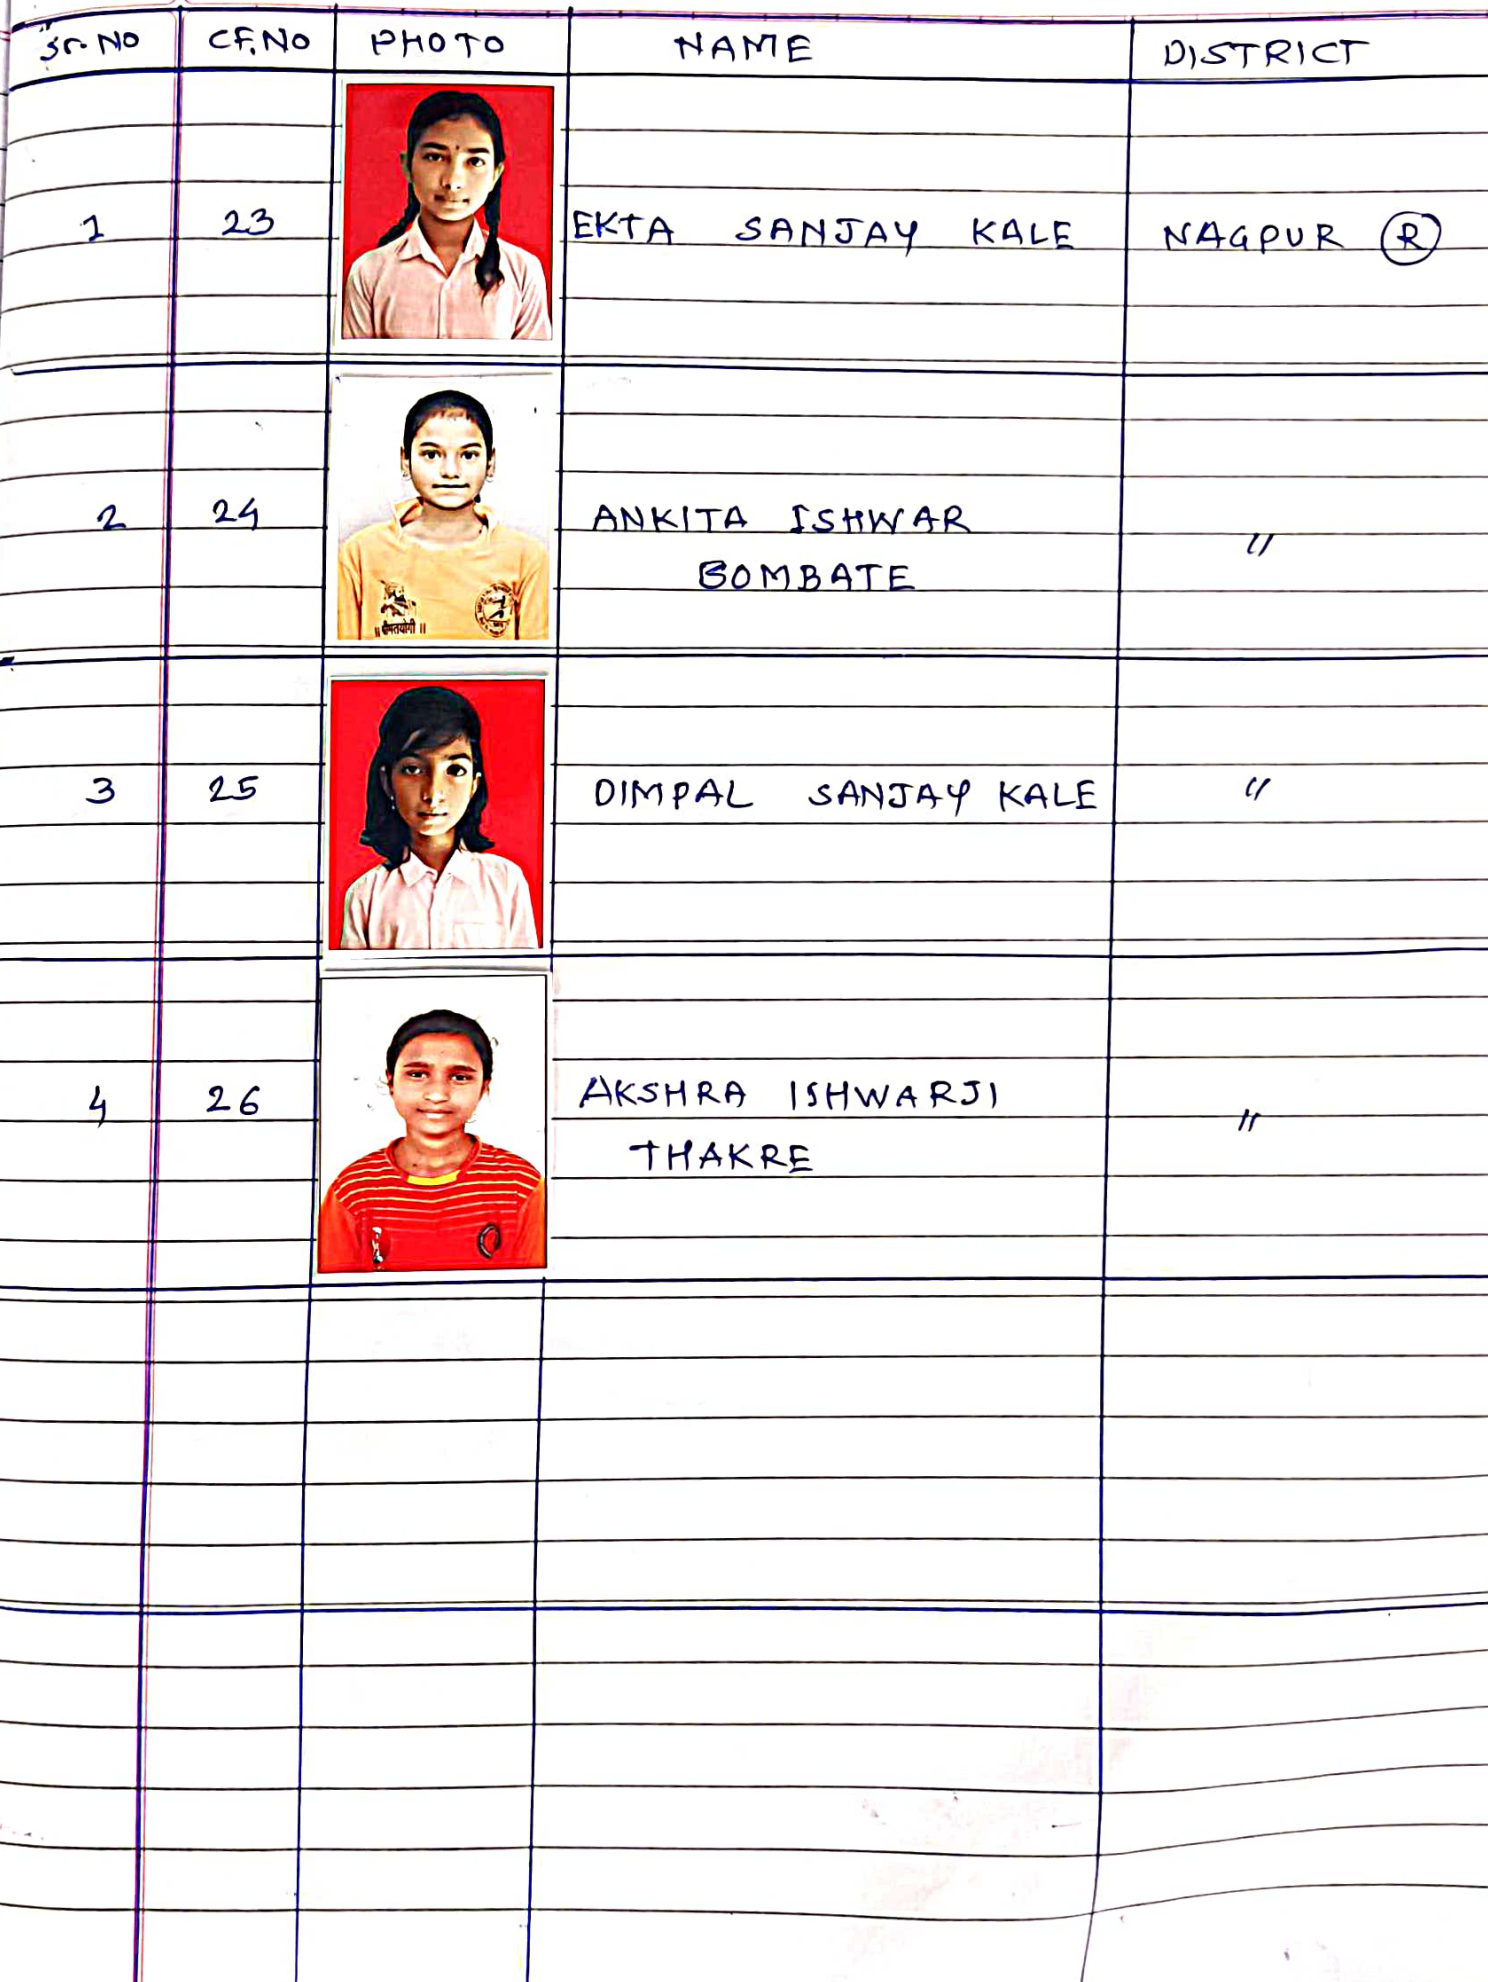 Sr. No CF.No PHOTO NAME DISTRICT
1 23 EKTA SANJAY KALE NAGPUR R
2 24 ANKITA ISHWAR "
BOMBATE
3 25 DIMPAL SANJAY KALE "
4 26 AKSHRA ISHWARJI "
THAKRE